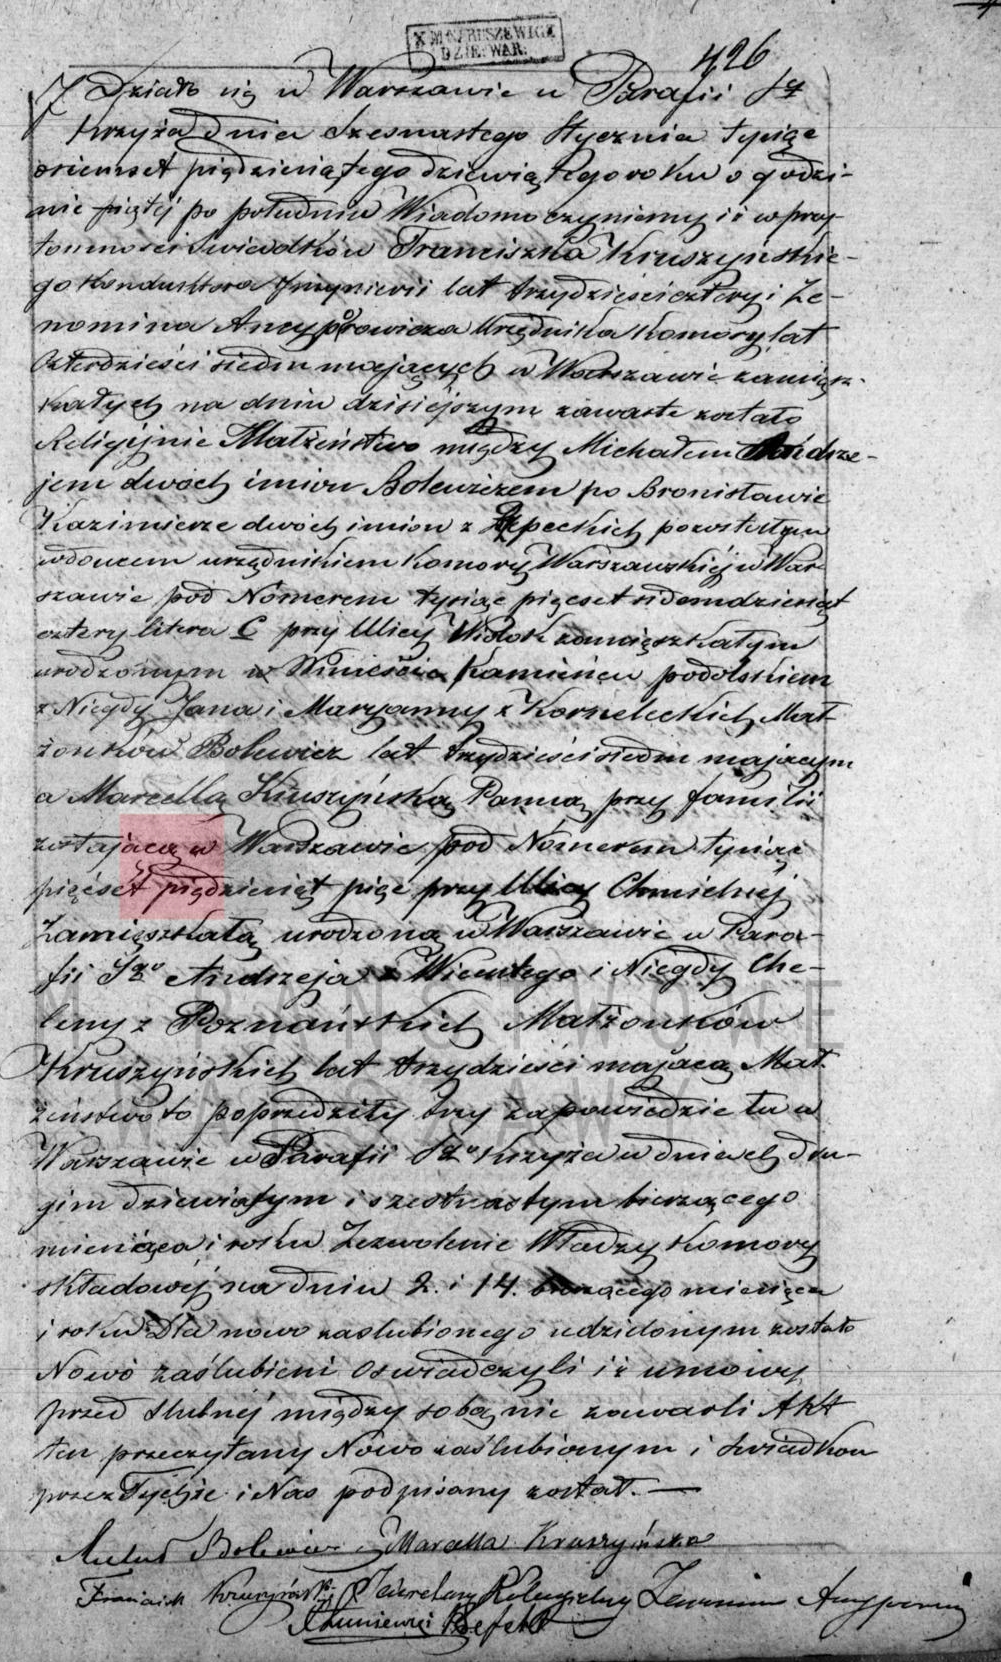 X M FRUSZEWICZ
DZIE: WAR:
426
Działo się w Warszawie w Parafii Sgo
krzyża dnia szesnastego Stycznia tysiąc
osiemset pięćdziesiątego dziewiątego roku o godzi-
nie piątej po południu Wiadomo czyniemy iż w przy-
tomności Swiadków Franciszka Kruszyńskie-
go Konduktora Inzynierii lat trzydzieści cztery i Ze-
nomina Ancyporowicza Urzędnika Komory lat
Czterdzieści siedm mających w Warszawie zamiesz-
kałych na dniu dzisiejszym zawarte zostało
Religijnie Małżeństwo między Michałem Andrze-
jem dwóch imion Bolewiczem po Bronisławie
Kazimierze dwóch imion z pozostałym
wdowcem urzędnikiem Komory Warszawskiéj w War-
szawie pod Nómerem tysiąc pięćset siedemdziesiąt
cztery litera C przy Ulicy Widok zamięszkałym
urodzonym w Mmieście Kamieńcu podolskiem
z Niegdy Jana i Maryanny z Korzeleckich Mał-
żonków Bolewicz lat trzydzieści siedm mającym
a Marcellą Kruszyńską Panną przy familii
zostającą w Warszawie pod Nómerem tysiąc
pięćset pięćdziesiąt pięć przy Ulicy Chmielnéj
Zamięszkałą urodzoną w Warszawie w Para-
fii Sgo Andrzeja z Wincentego i Niegdy Che-
leny z Poznańskich Małżonków
Kruszyńskich lat trzydzieści mającą Mał-
żeństwo to poprzedziły trzy zapowiedzie tu w
Warszawie w Parafii Sgo Krzyża w dniach dru-
gim dziewiątym i szestnastym bieżącego
miesiąca i roku Zezwolenie Władzy Komory
składowéj na dniu 2. i 14. bieżącego miesiąca
i roku Dla nowo zaslubionego udzielonym zostało
Nowo zaślubieni Oswiadczyli iż umowy
przed slubnéj między sobą nie zawarli Akt
ten przeczytany Nowo zaślubionym i swiadkom
przez Tychże i Nas podpisany został. —
Michał Bolewicz Marcella Kruszyńska
Franciszek Kruszyński X Sekretarz Kolegialny Zenomin